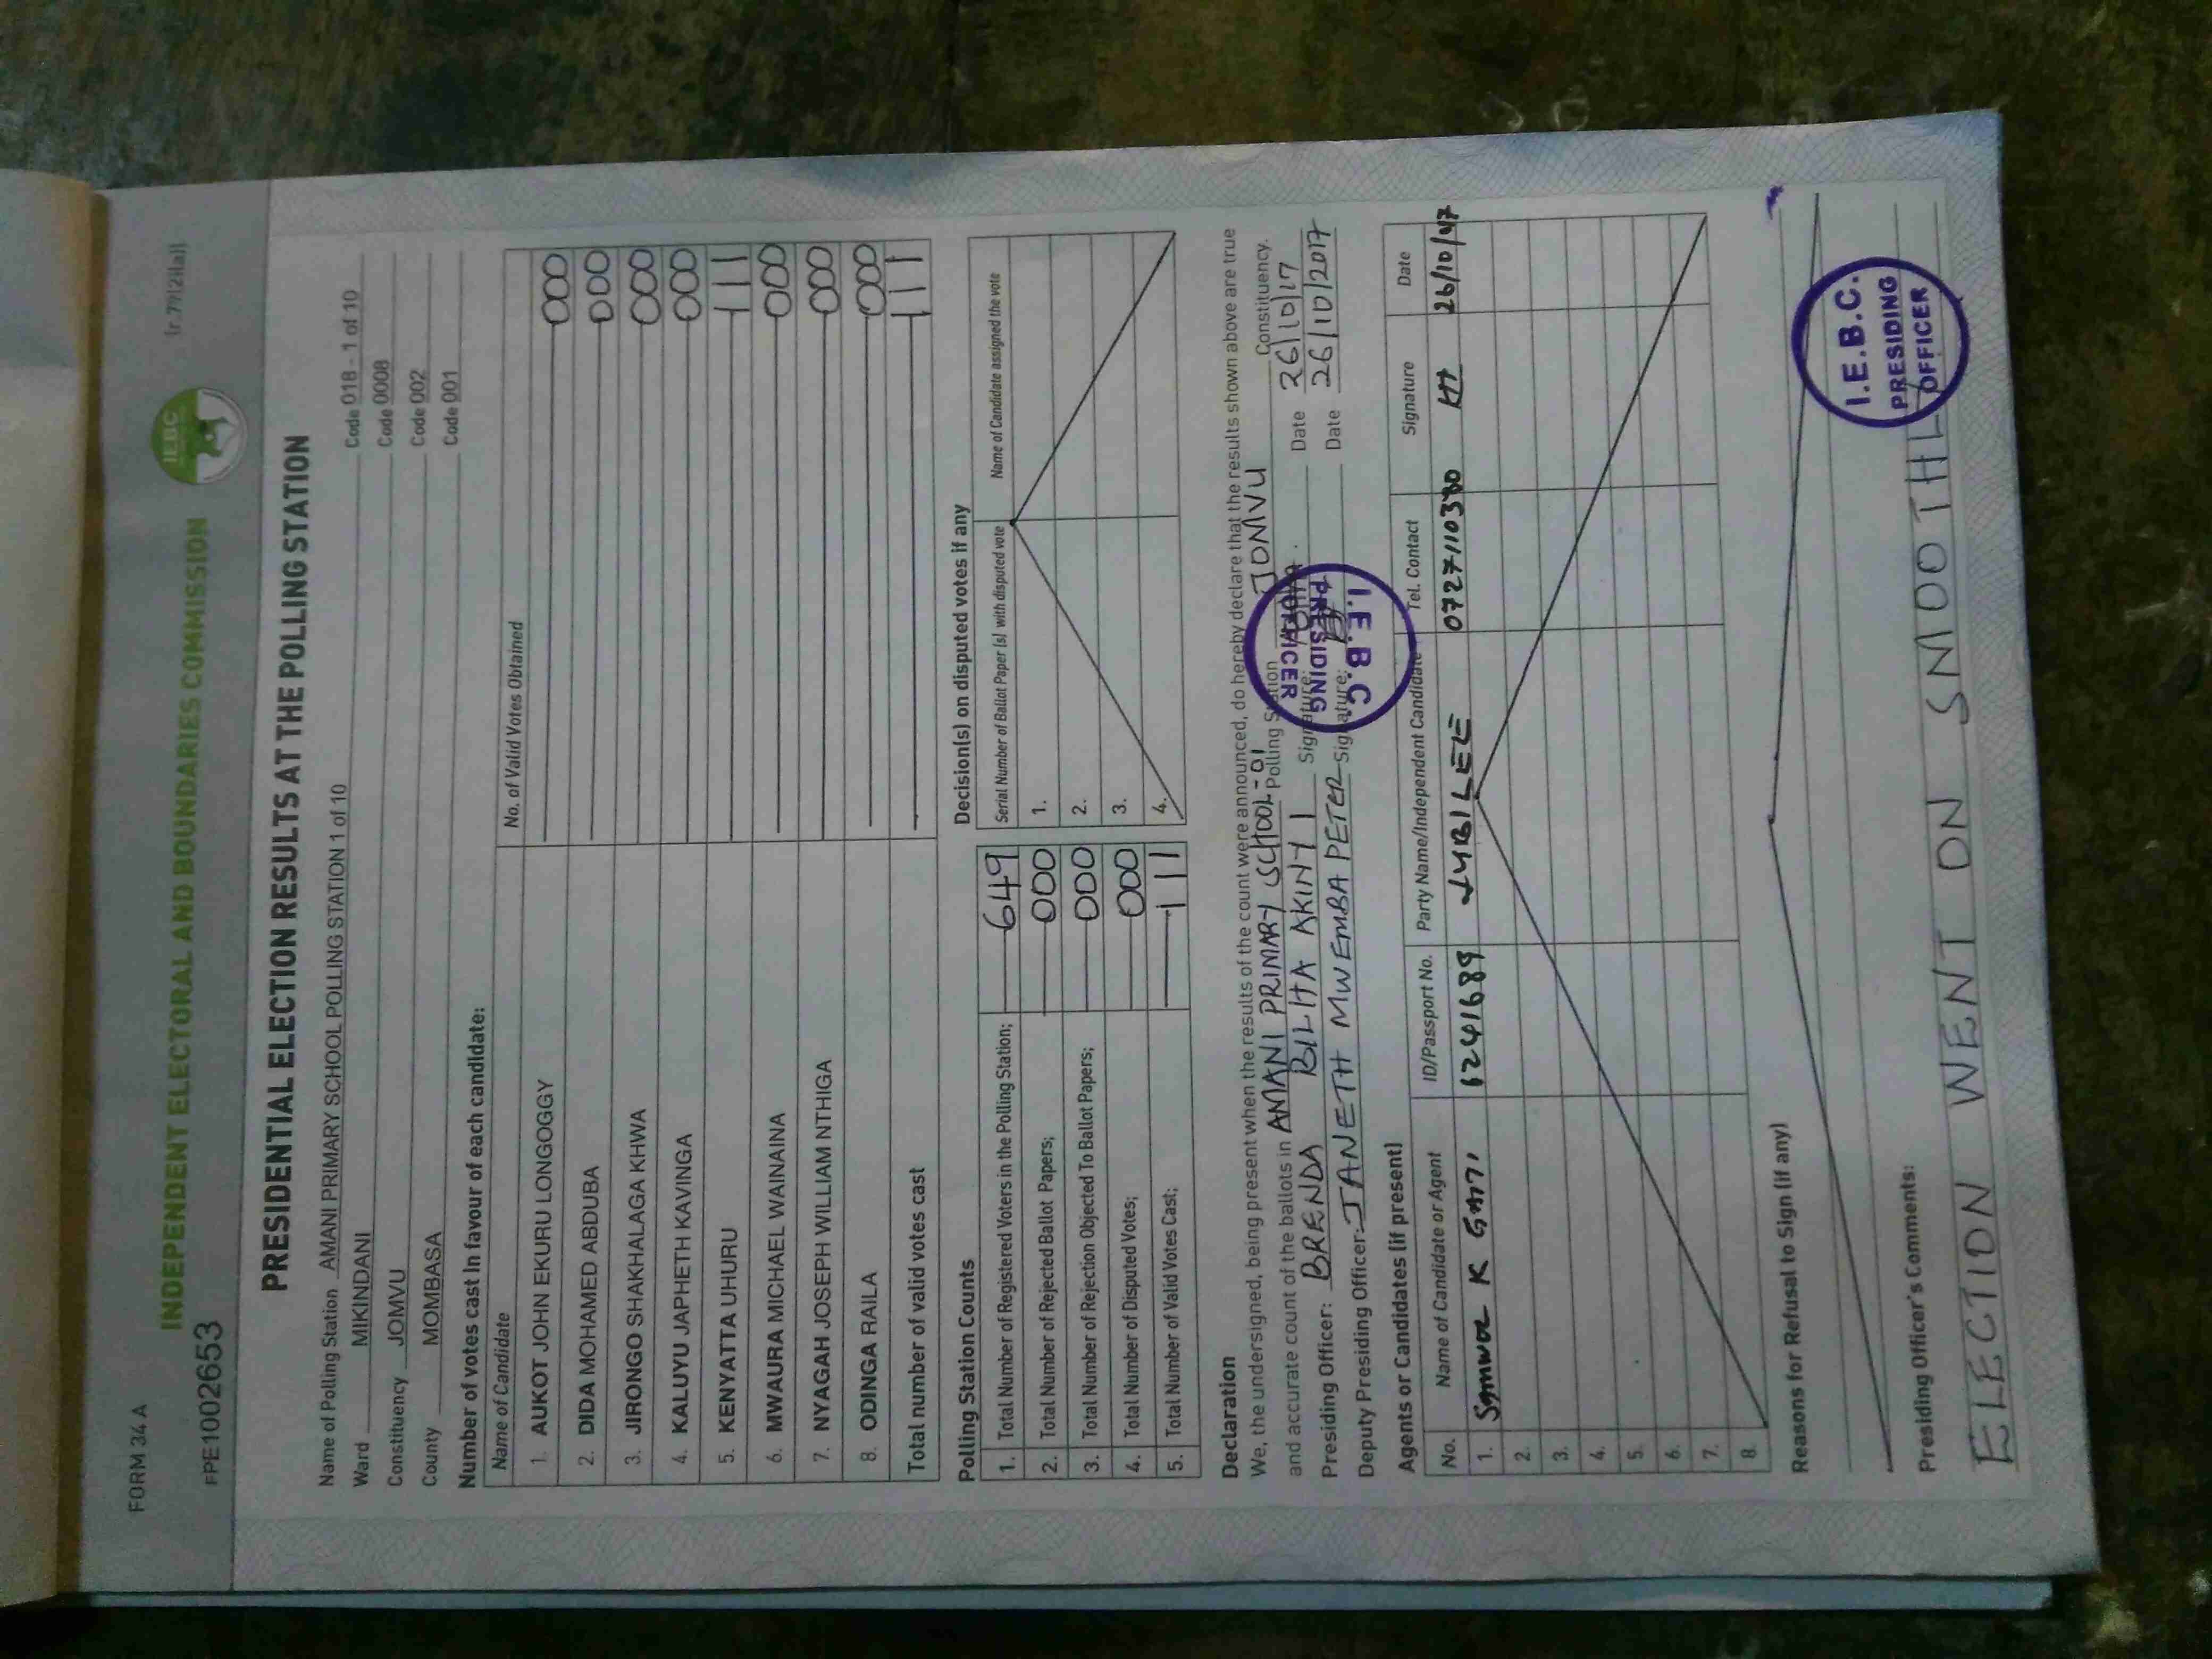 FORM 34 A
(r.79(2)(a))
INDEPENDENT ELECTORAL AND BOUNDARIES COMMISSION
IEBC
FPE1002653
PRESIDENTIAL ELECTION RESULTS AT THE POLLING STATION
Name of Polling Station AMANI PRIMARY SCHOOL POLLING STATION 1 of 10 Code 018 - 1 of 10
Ward MIKINDANI Code 0008
Constituency JOMVU Code 002
County MOMBASA Code 001
Number of votes cast In favour of each candidate:
Name of Candidate No. of Valid Votes Obtained
1. AUKOT JOHN EKURU LONGOGGY 000
2. DIDA MOHAMED ABDUBA 000
3. JIRONGO SHAKHALAGA KHWA 000
4. KALUYU JAPHETH KAVINGA 000
5. KENYATTA UHURU 111
6. MWAURA MICHAEL WAINAINA 000
7. NYAGAH JOSEPH WILLIAM NTHIGA 000
8. ODINGA RAILA 000
Total number of valid votes cast 111
Polling Station Counts
1. Total Number of Registered Voters in the Polling Station; 649
2. Total Number of Rejected Ballot Papers; 000
3. Total Number of Rejection Objected To Ballot Papers; 000
4. Total Number of Disputed Votes; 000
5. Total Number of Valid Votes Cast; 111
Decision(s) on disputed votes if any
Serial Number of Ballot Paper (s) with disputed vote Name of Candidate assigned the vote
1.
2.
3.
4.
Declaration
We, the undersigned, being present when the results of the count were announced, do hereby declare that the results shown above are true
and accurate count of the ballots in AMANI PRIMARY SCHOOL-01 Polling Station JOMVU Constituency.
Presiding Officer: BRENDA BILHA AKINYI Signature: Date 26/10/17
Deputy Presiding Officer: JANETH MWEMBA PETER Signature: Date 26/10/2017
I.E.B.C.
PRESIDING
OFFICER
Agents or Candidates (if present)
No. Name of Candidate or Agent ID/Passport No. Party Name/Independent Candidate Tel. Contact Signature Date
1. K 12241689 JUBILEE 0727110380 26/10/17
2.
3.
4.
5.
6.
7.
8.
Reasons for Refusal to Sign (if any)
Presiding Officer's Comments:
ELECTION WENT ON SMOOTHLY
I.E.B.C.
PRESIDING
OFFICER